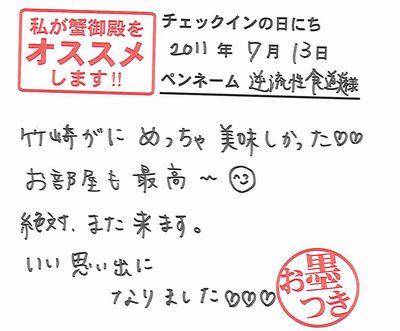 私が蟹御殿を
オススメ
します!!
チェックインの日にち
2011年 7月 13日
ペンネーム 逆流性食道炎様
竹崎がに めっちゃ 美味しかった♡♡
お部屋も 最高〜☺
絶対、また来ます。
いい 思い出に
なりました♡♡♡
お墨つき